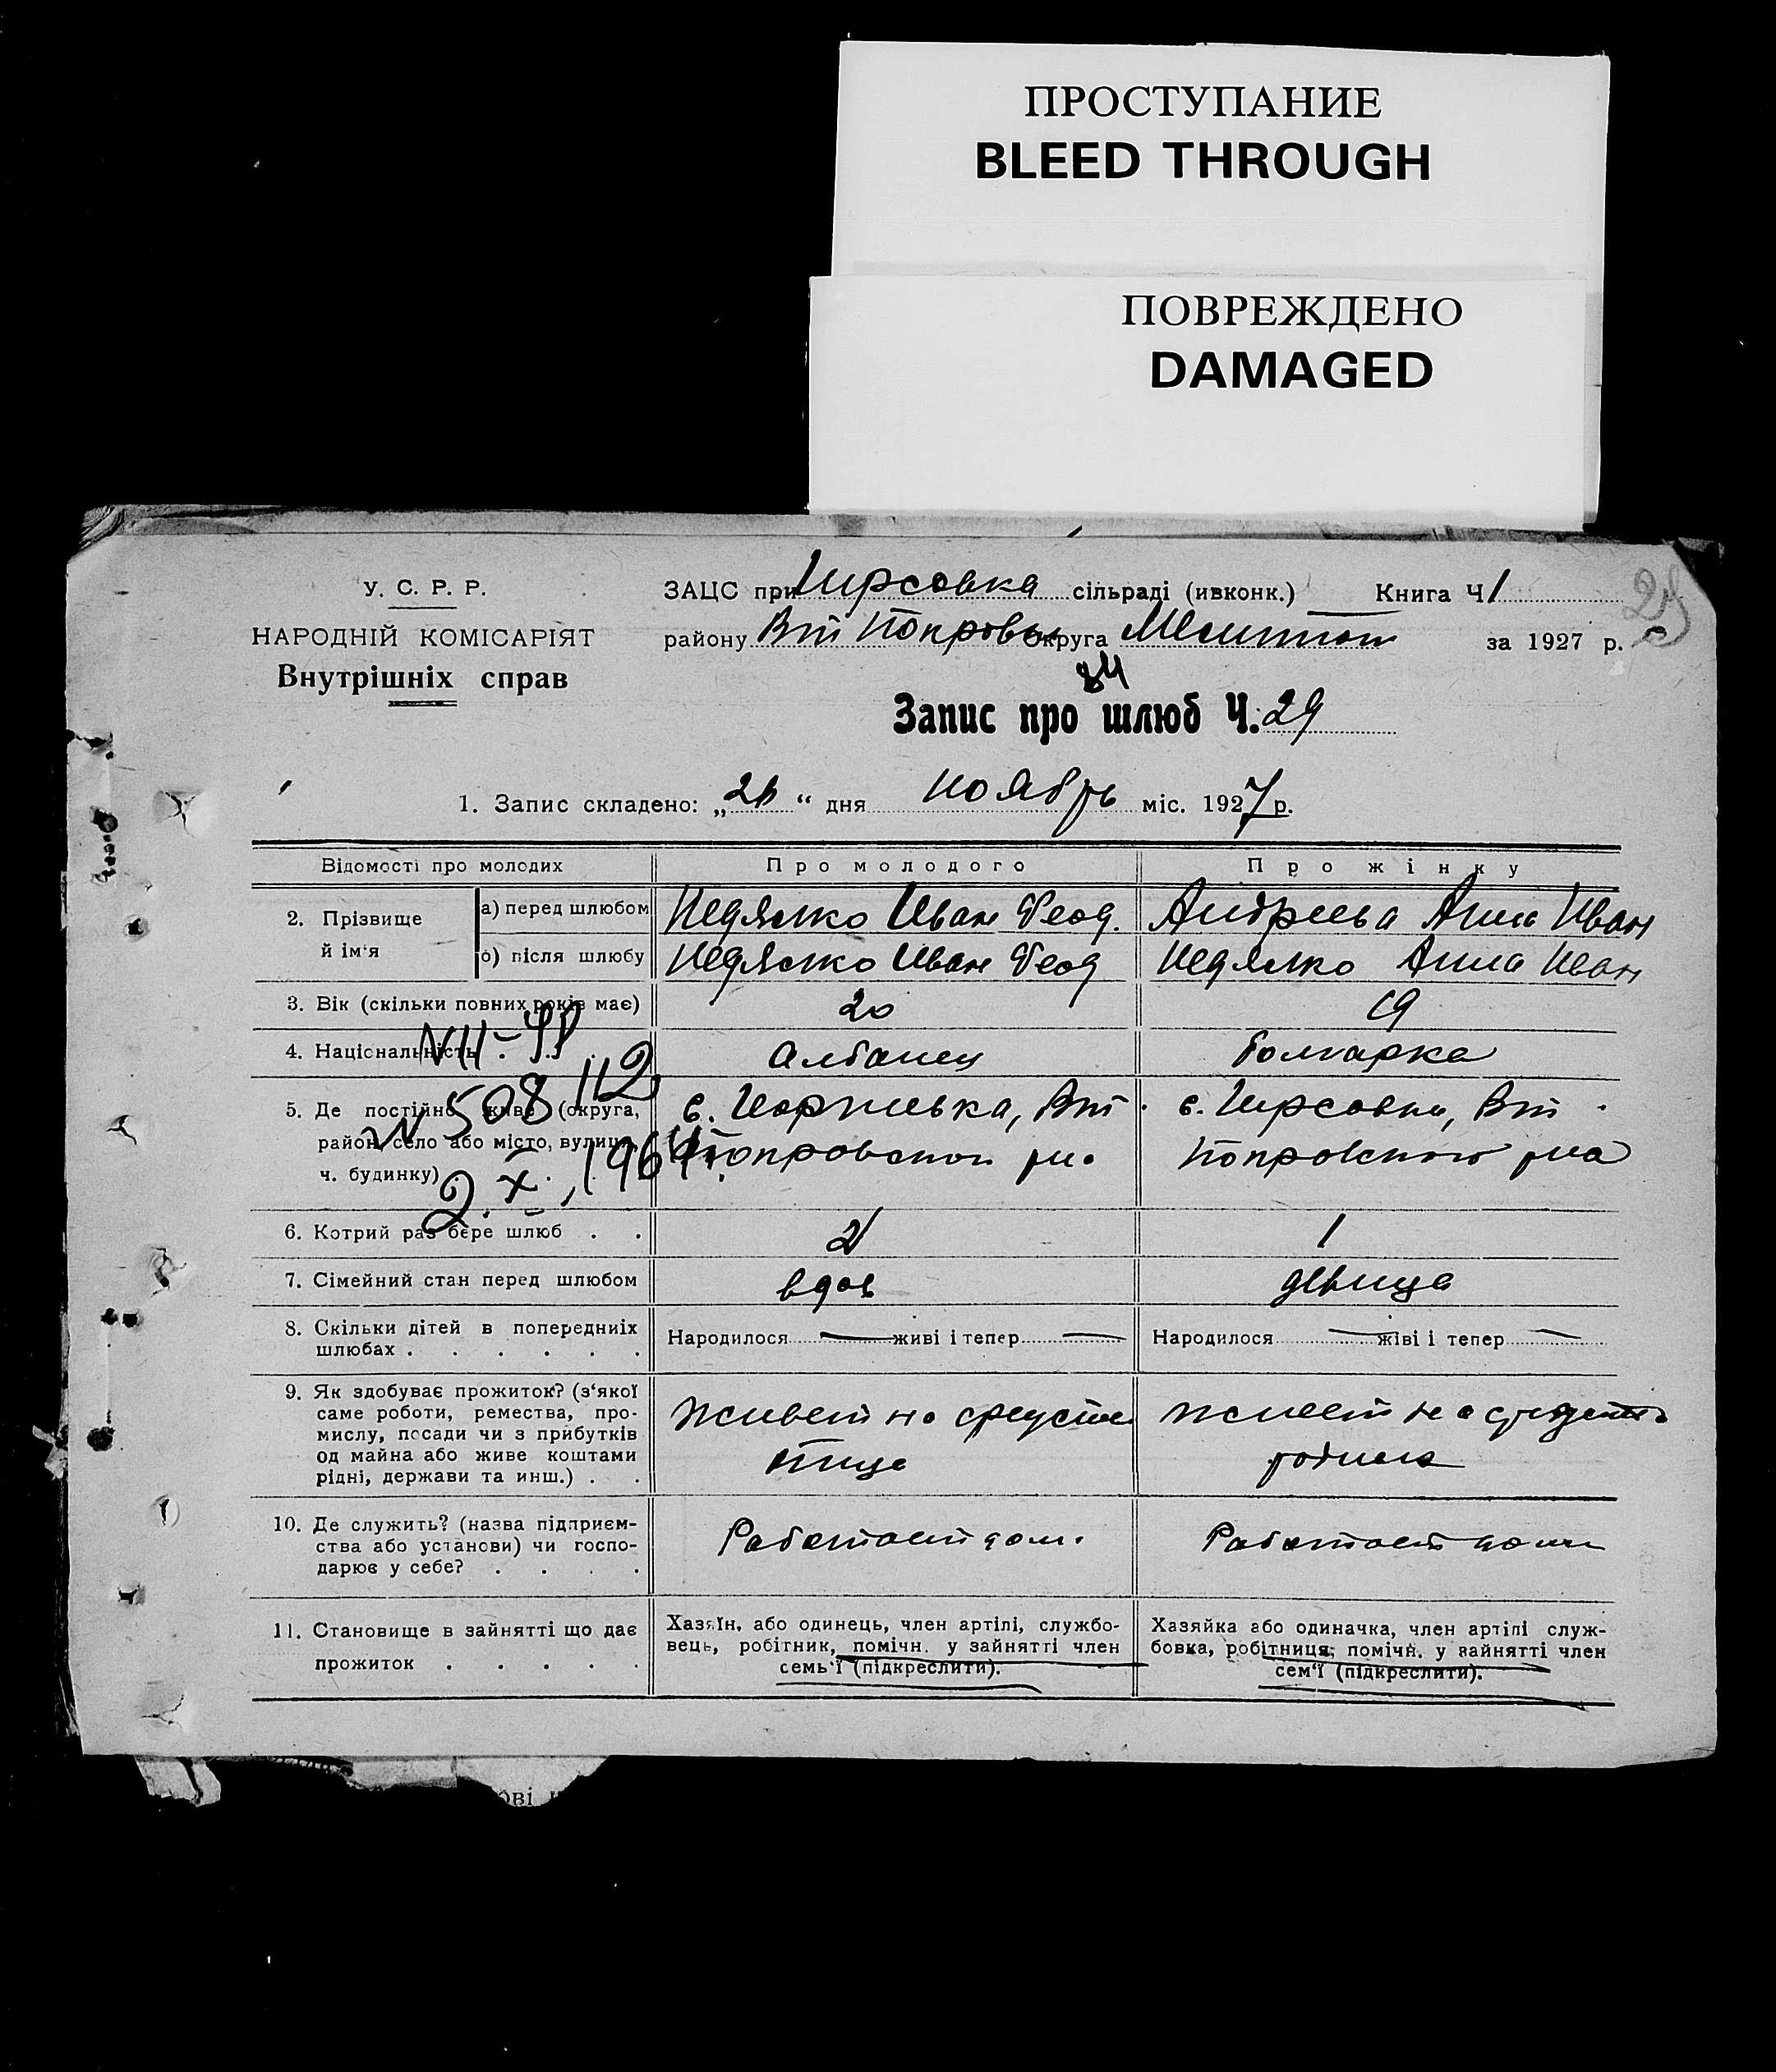 ПРОСТУПАНИЕ
BLEED THROUGH
ПОВРЕЖДЕНО
DAMAGED
У. С. Р. Р.
НАРОДНІЙ КОМІСАРІЯТ
Внутрішніх справ
ЗАЦС при Гирсовка сільраді (ивконк.) Книга Ч 1
району округа Мелитоп за 1927 р.
84
Запис про шлюб Ч. 29
1. Запис складено: „ “ дня ноябрь міс. 1927 р.
Відомості про молодих Про молодого Про жінку
2. Прізвище й ім‘я
а) перед шлюбом Недялко Иван Феод. Андреева Анна Иван
б) після шлюбу Недялко Иван Феод Недялко Анна Иван
3. Вік (скільки повних років має) 20 19
4. Національність Албанец болгарка
5. Де постійно живе (округа, с. Вт. с. Гирсовка, Вт.
район, село або місто, вулиця,
ч. будинку)
508112
2. X. 1964.
6. Котрий раз бере шлюб . . 2 1
7. Сімейний стан перед шлюбом вдов девица
8. Скільки дітей в попередниіх Народилося — живі і тепер — Народилося — живі і тепер —
шлюбах . . . . . .
9. Як здобуває прожиток? (з‘якої Живет на средства Живет на средства
саме роботи, ремества, про-
мислу, посади чи з прибутків отца
од майна або живе коштами
рідні, держави та инш.) . .
10. Де служить? (назва підприєм- Работает дом. Работает дома
ства або установи) чи госпо-
дарює у себе? . . . .
11. Становище в зайнятті що дає Хазяїн, або одинець, член артілі, службо- Хазяйка або одиначка, член артілі служ-
прожиток . . . . . вець, робітник, помічн. у зайнятті член бовка, робітниця, помічн. у зайнятті член
семь‘ї (підкреслити). сем‘ї (підкреслити).